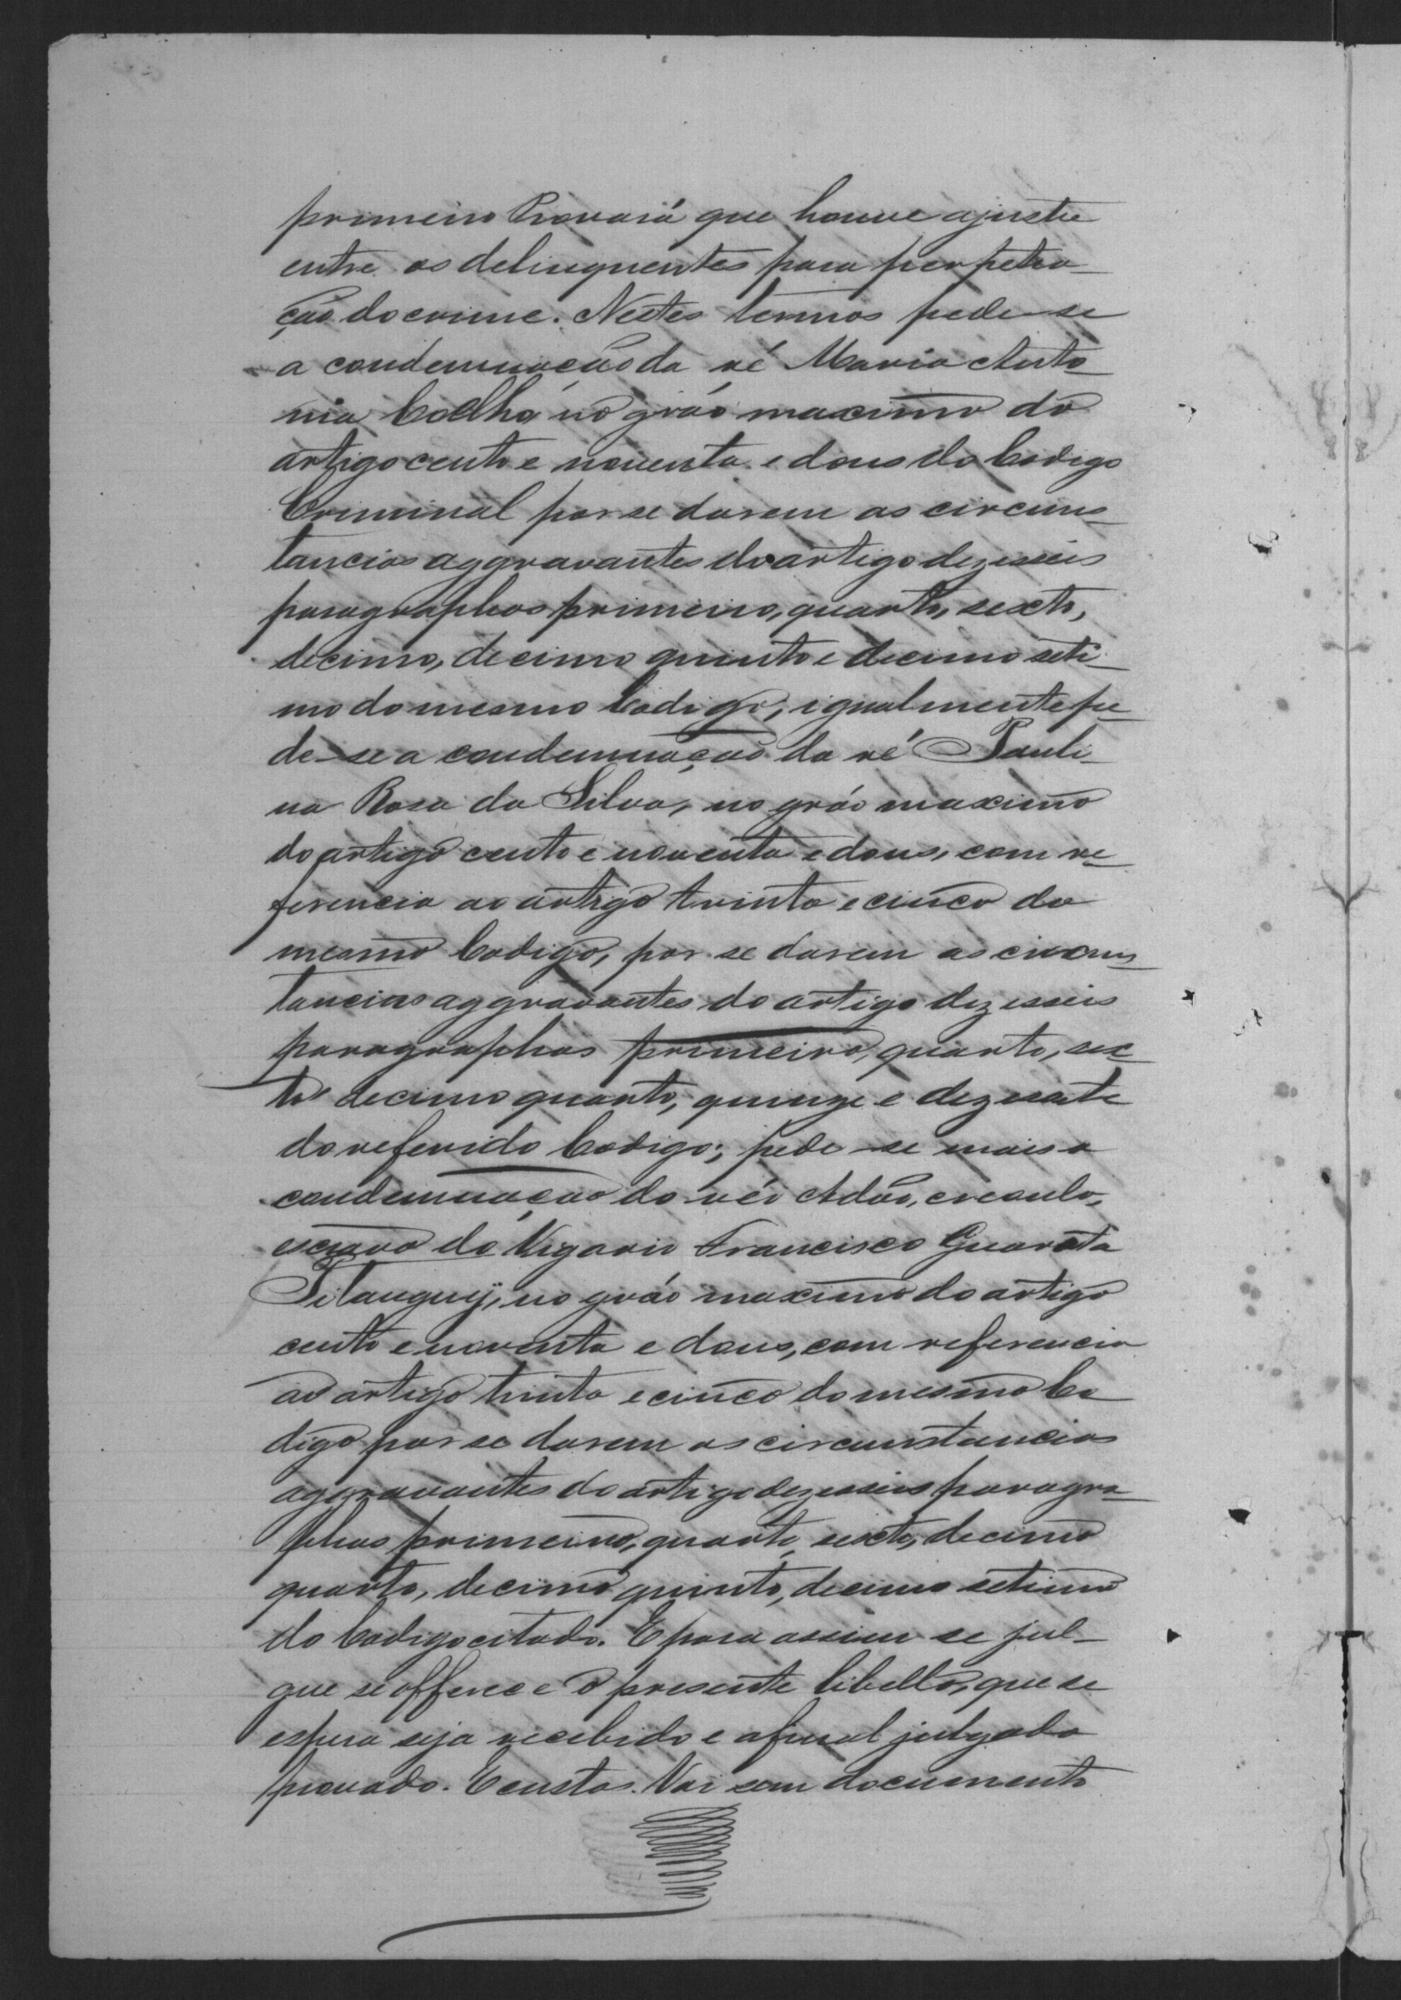 primeiro Provará que houve ajuste
entre os delinquentes para perpetra-
ção do crime. Nestes termos pede-se
a condemnação da ré Maria Anto-
nia Coelho, no gráo maximo do
artigo cento e noventa e dous do Codigo
Criminal por se darem as circuns-
tancias aggravantes do artigo dezesseis
paragraphos primeiro, quarto, sexto,
decimo, decimo quinto e decimo seti-
mo do mesmo Codigo; igualmente pe-
de-se a condemnação da ré Pauli-
na Rosa da Silva, no gráo maximo
do artigo cento e noventa e dous, com re-
ferencia ao artigo trinta e cinco do
mesmo Codigo, por se darem as circuns-
tancias aggravantes do artigo dezesseis
paragraphos primeiro, quarto, sex-
to decimo quarto, quinze e dezesete
do referido Codigo; pede-se mais a
condemnação do réo Adão, creoulo,
escravo do Vigario Francisco Guarata
Pitanguy, no gráo maximo do artigo
cento e noventa e dous, com referencia
ao artigo trinta e cinco do mesmo Co-
digo por se darem as circunstancias
aggravantes do artigo dezesseis paragra-
phos primeiro, quarto, sexto, decimo
quarto, decimo quinto, decimo setimo
do Codigo citado. E para assim se jul-
gue se offerece o presente libello, que se
espera seja recebido e afinal julgado
provado. E custas. Vai sem documento